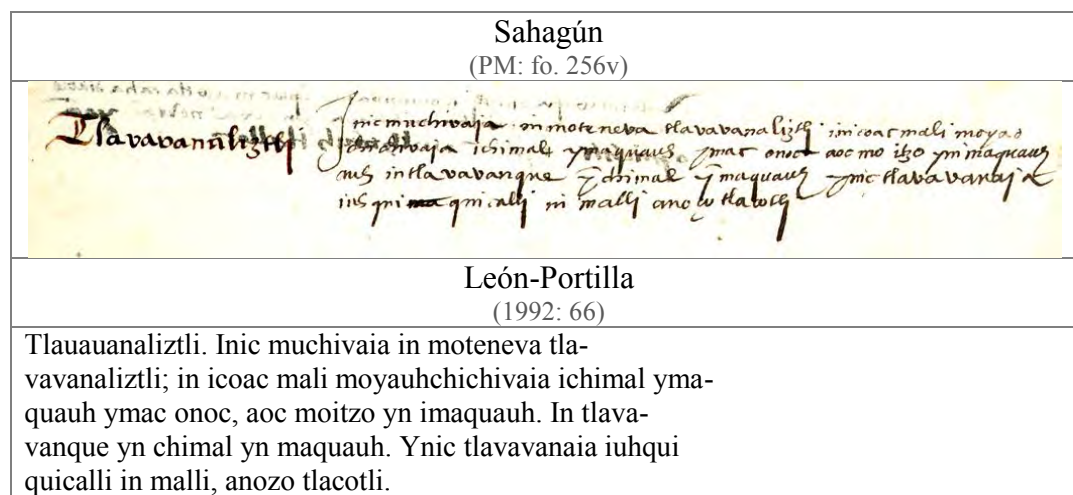 Sahagún
(PM: fo. 256v)
Tlavavanaliztli Inic muchivaia in moteneva tlavavanaliztli inicoac mali moyao
chichivaia ichimal ymaquauh ymac onoc aoc mo itzo yn imaquauh
auh in tlavavanque ỹ chimal ỹ maquauh ynic tlavavanaia
iuhqui quicalli in malli anozo tlacotli
León-Portilla
(1992: 66)
Tlauauanaliztli. Inic muchivaia in moteneva tla-
vavanaliztli; in icoac mali moyauhchichivaia ichimal yma-
quauh ymac onoc, aoc moitzo yn imaquauh. In tlava-
vanque yn chimal yn maquauh. Ynic tlavavanaia iuhqui
quicalli in malli, anozo tlacotli.